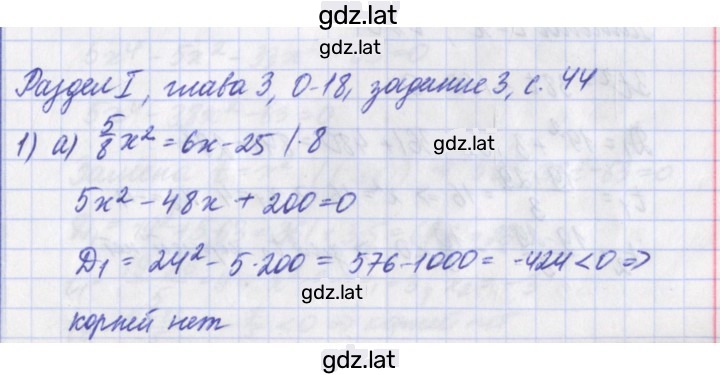 gdz.lat
Раздел I, глава 3, О-18, задание 3, с. 44
1) а) 5/8 x² = 6x - 25 | · 8
gdz.lat
5x² - 48x + 200 = 0
Д₁ = 24² - 5·200 = 576 - 1000 = -424 < 0 =>
gdz.lat
корней нет
gdz.lat